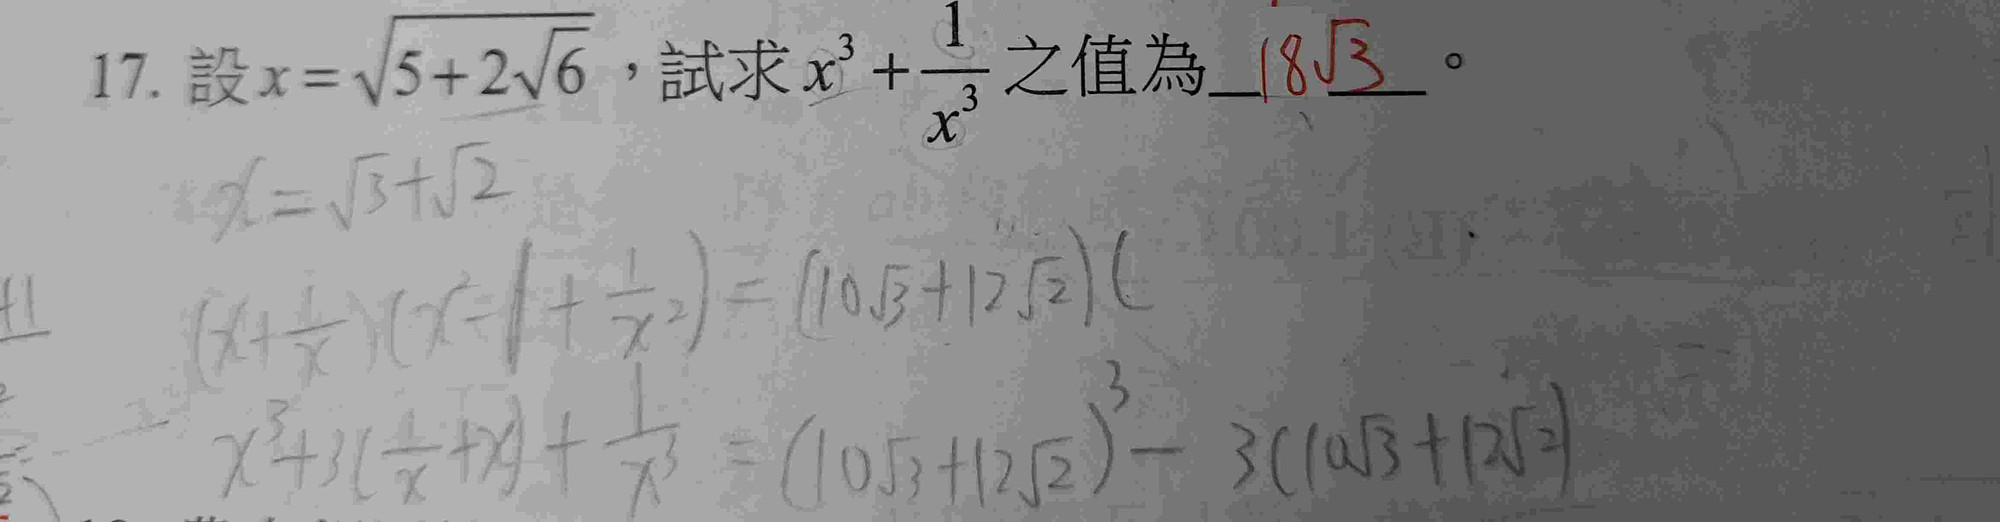 17. 設 x = √(5+2√6) ，試求 x³ + 1/x³ 之值為 18√3 。
x = √3+√2
+1
(x+1/x)(x²-1+1/x²) = (10√3+12√2)(
x³+3(1/x+x)+1/x³ = (10√3+12√2)³ - 3(10√3+12√2)